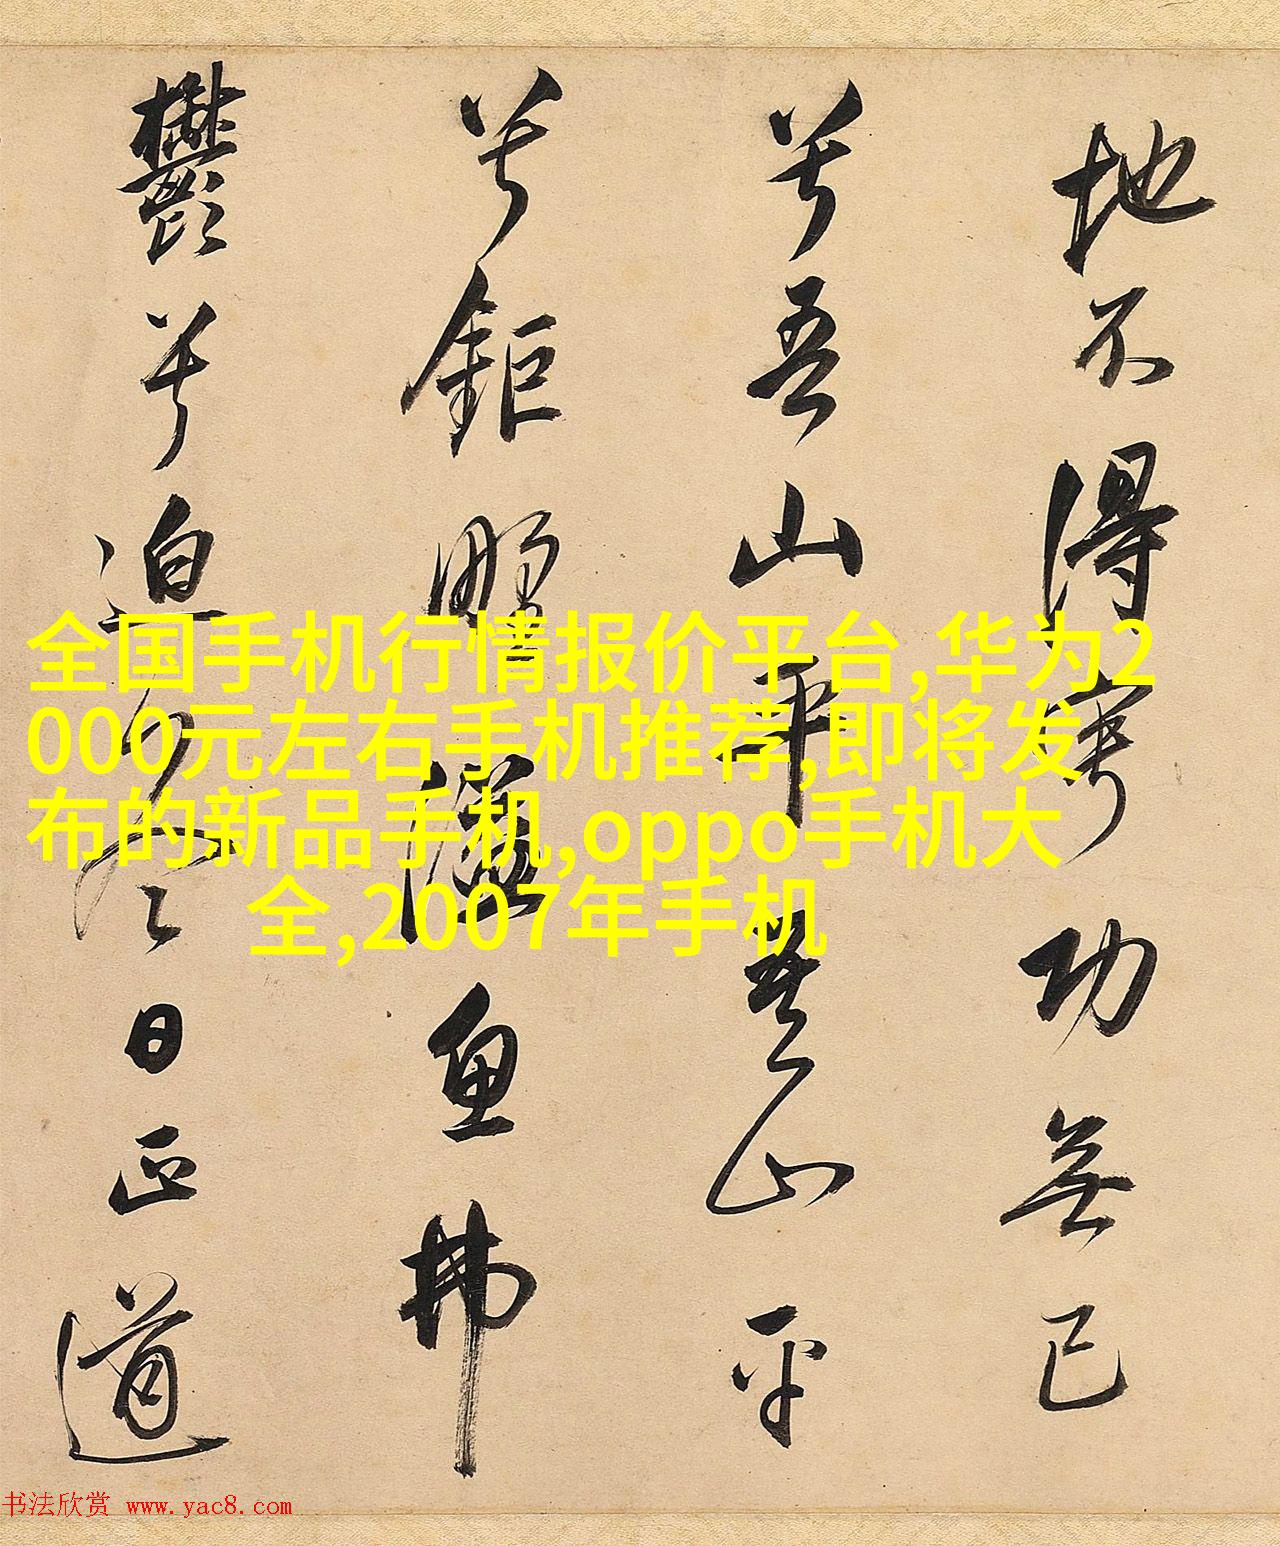 地不得寧功無已
兮吾山平吾山平
兮鉅野溢魚弗
鬱兮迫冬日正道
全国手机行情报价平台,华为2
000元左右手机推荐,即将发
布的新品手机,oppo手机大
全,2007年手机
书法欣赏 www.yac8.com